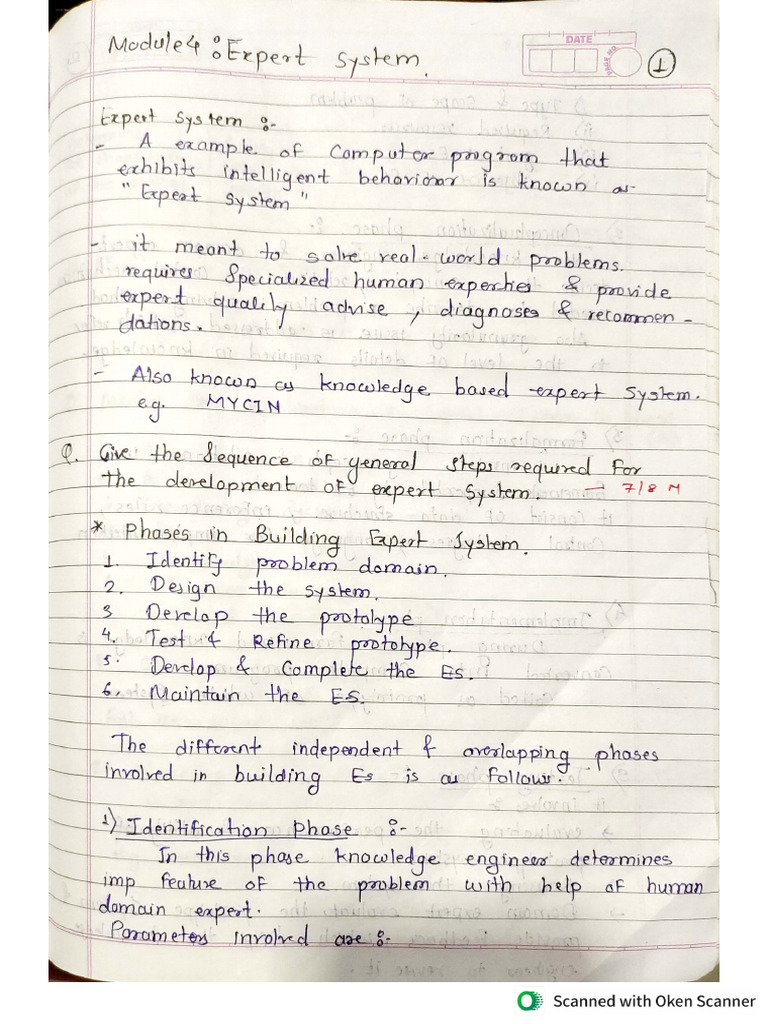 Module 4 : Expert System.
DATE
PAGE NO.
1
Expert System :-
- A example of Computer program that
exhibits intelligent behaviour is known as
"Expert System"
- it meant to solve real-world problems.
requires Specialized human experties & provide
expert quality advise, diagnoses & recommen-
dations.
- Also known as knowledge based expert System.
e.g. MYCIN
Q. Give the Sequence of general steps required for
the development of expert System → 7/8 M
* Phases in Building Expert System.
1. Identify problem domain.
2. Design the system.
3 Develop the prototype
4. Test & Refine prototype.
5. Develop & Complete the ES.
6. Maintain the ES.
The different independent & overlapping phases
involved in building Es is as follows.
1) Identification Phase :-
In this phase knowledge engineer determines
imp feature of the problem with help of human
domain expert.
Parameters involved are :-
Scanned with Oken Scanner